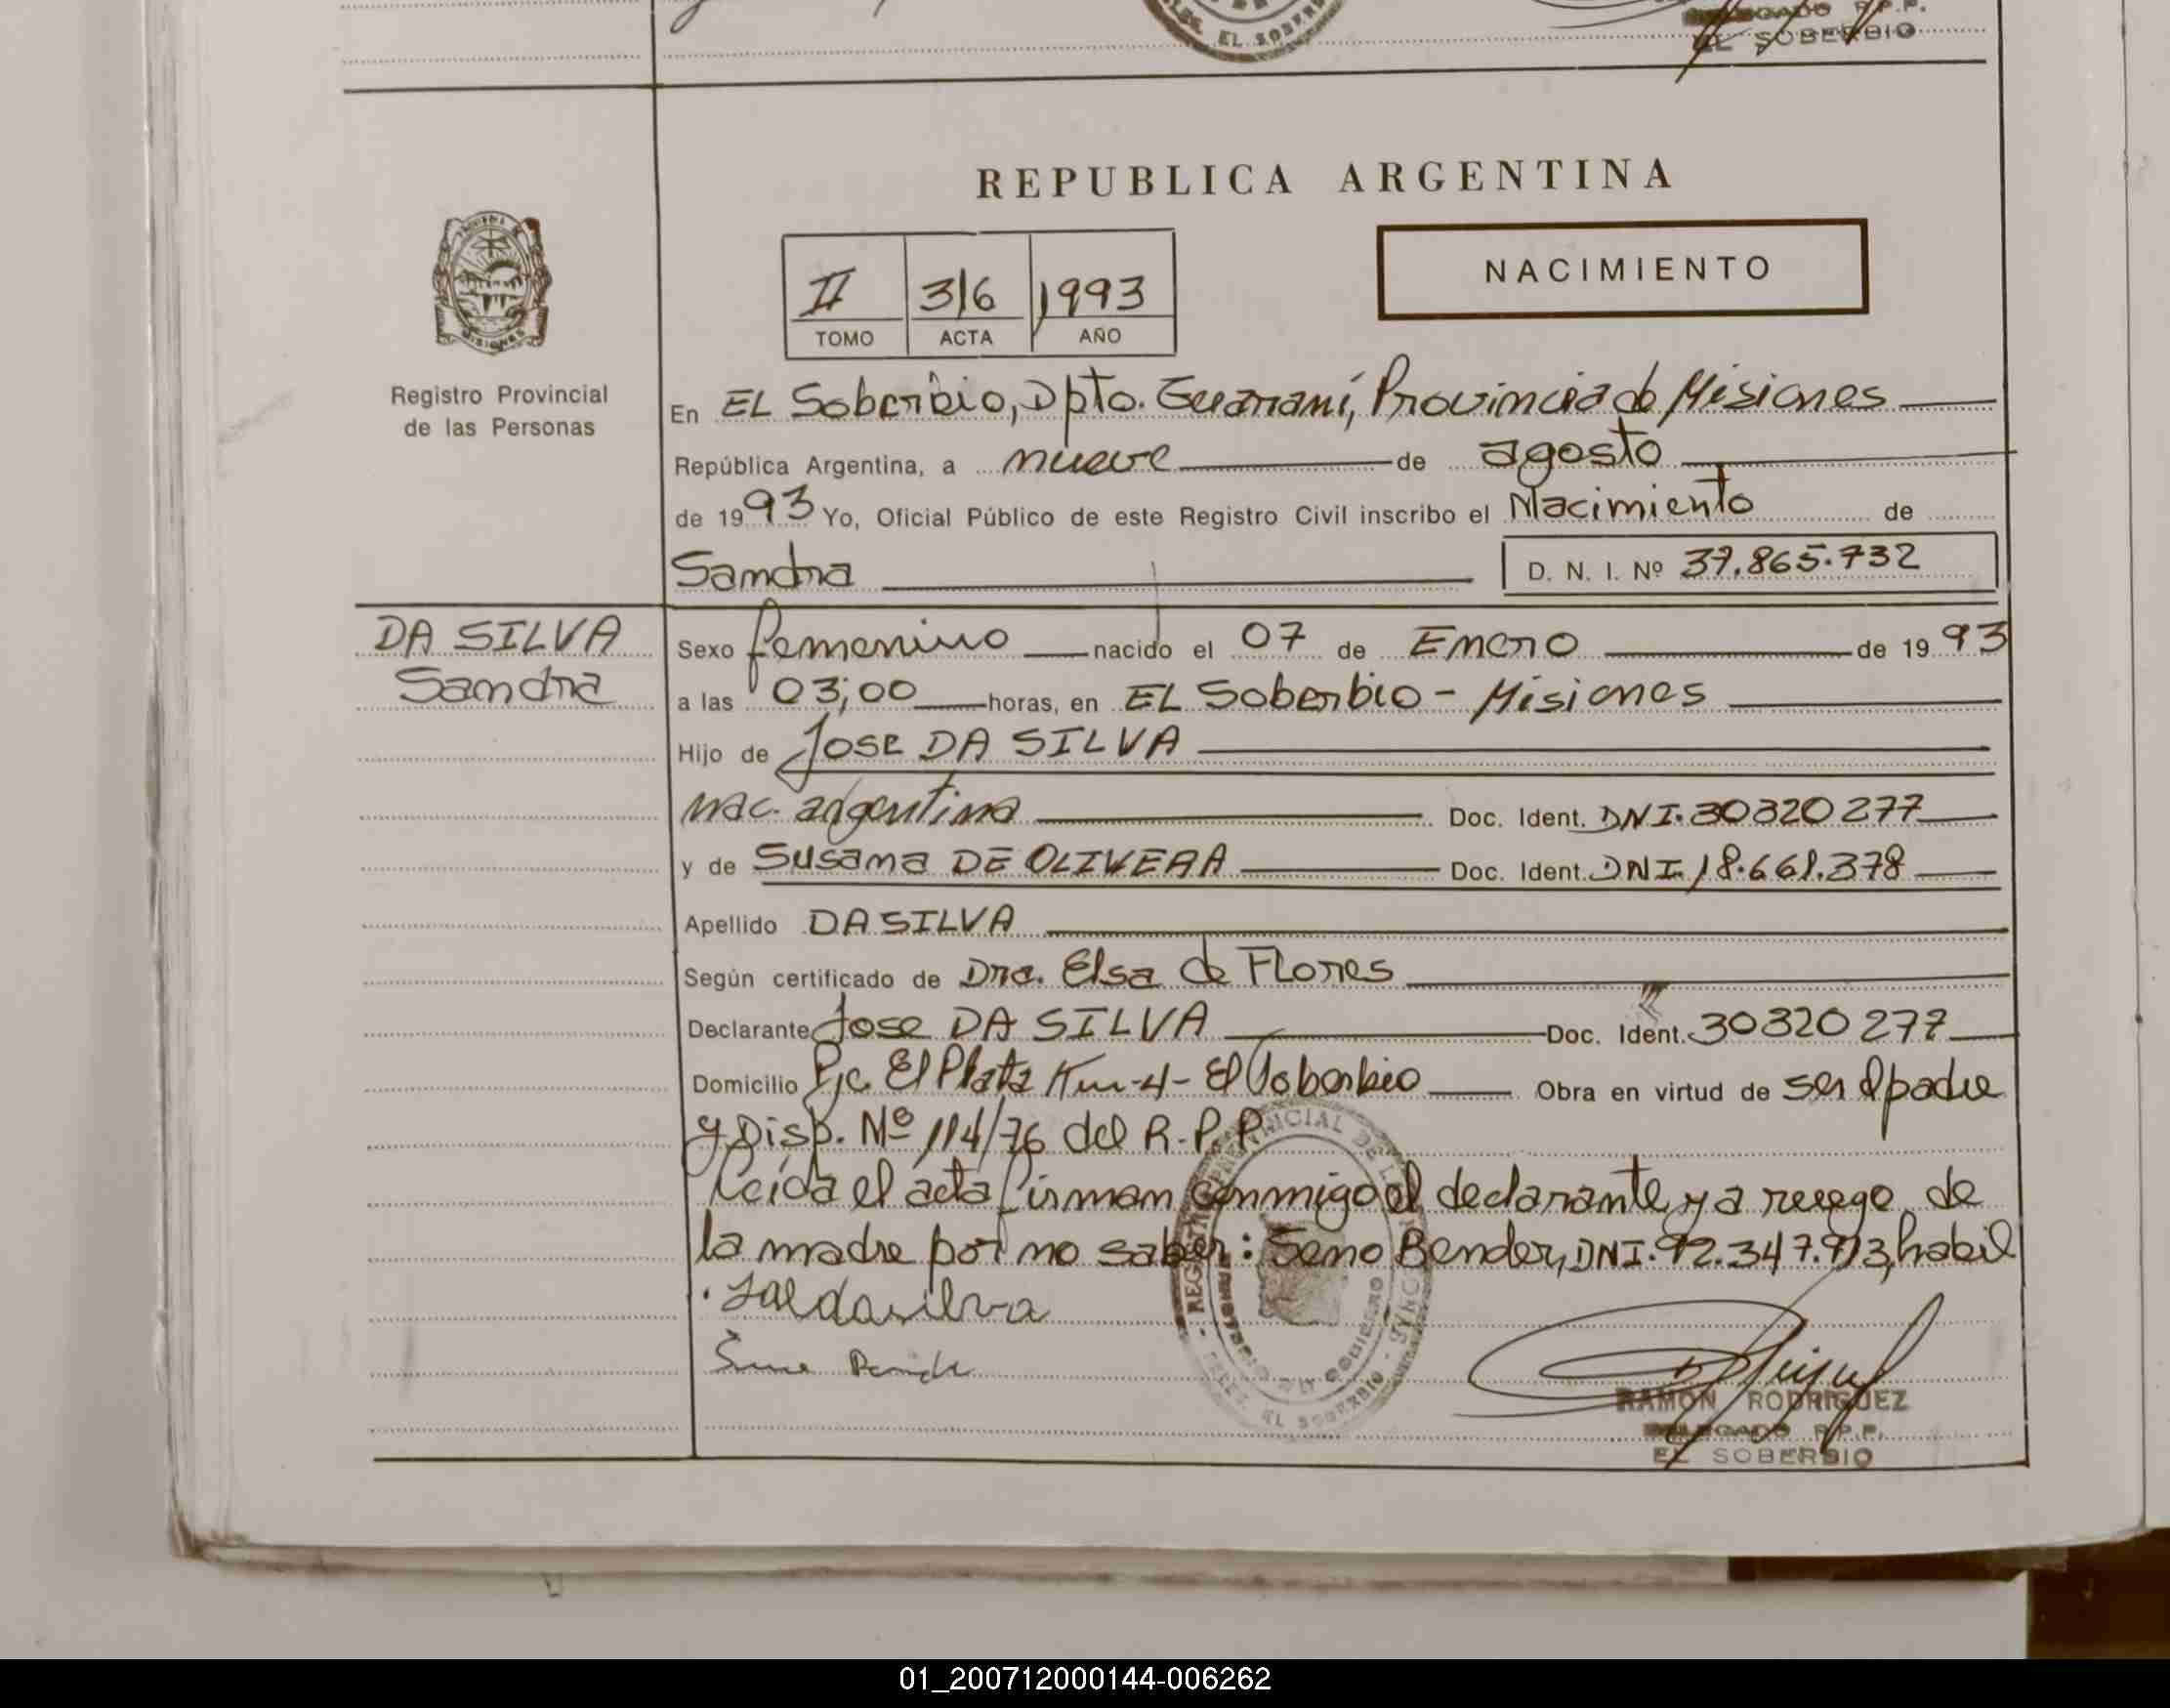 EL SOBERBIO
DELEGADO R.P.P.
EL SOBERBIO
REPUBLICA ARGENTINA
NACIMIENTO
II 316 1993
TOMO ACTA AÑO
MISIONES
Registro Provincial
de las Personas
En EL Soberbio, Dpto. Guaraní, Provincia de Misiones
República Argentina, a nueve de agosto
de 1993 Yo, Oficial Público de este Registro Civil inscribo el Nacimiento de
Sandra D. N. I. Nº 37.865.732
DA SILVA
Sandra
Sexo femenino nacido el 07 de Enero de 1993
a las 03;00 horas, en EL Soberbio - Misiones
Hijo de Jose DA SILVA
nac. argentina Doc. Ident. DNI. 30320277
y de Susana DE OLIVERA Doc. Ident. DNI. 18.661.378
Apellido DA SILVA
Según certificado de Dra. Elsa de Flores
Declarante Jose DA SILVA Doc. Ident. 30320277
Domicilio Pje. El Plata Km-4- El Soberbio Obra en virtud de ser el padre
y Disp. Nº 114/76 del R.P.P.
Leída el acta firman conmigo el declarante y a ruego de
la madre por no saber: Seno Bender, DNI. 92.347.913, habil
RAMON RODRIGUEZ
DELEGADO R.P.P.
EL SOBERBIO
01_200712000144-006262